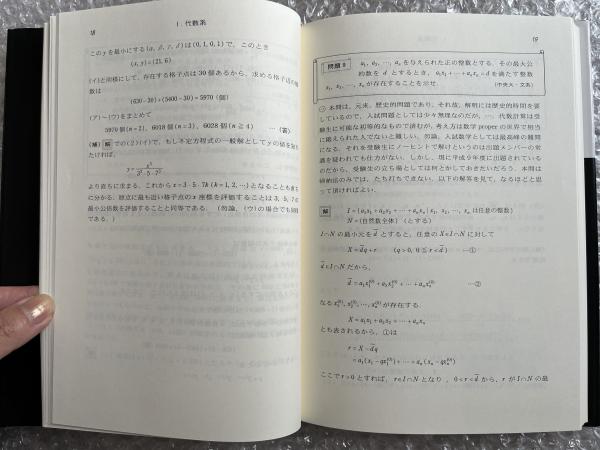 18
I. 代数系
この y を最小にする (α, β, γ, δ) は (0, 1, 0, 1) で，このとき
(x, y) = (21, 6)
(イ)と同様にして，存在する格子点は30個あるから，求める格子点の個
数は
(630−30)+(5400−30)=5970 (個)
(ア)〜(ウ)をまとめて
5970個(n=2)，6018個(n=3)，6028個(n≧4) …(答)
[補] [解]での(2)(イ)で，もし不定方程式の一般解としてyの値を知り
たければ，
より直ちに求まる．これから x=3·5·7k (k=1, 2, …) となることも直ち
に分かる．原点に最も近い格子点の x 座標を評価することは 3, 5, 7 の
最小公倍数を評価することと同等である．(勿論，(ウ)の場合でも同様
である．)
19
問題 9
a₁, a₂, …, aₙ を与えられた正の整数とする．その最大公
約数を d とするとき，a₁x₁+…+aₙxₙ=d を満たす整数
x₁, x₂, …, xₙ が存在することを示せ．
(中央大・文系)
本問は，元来，歴史的問題であり，それ故，解明には歴史的時間を要
しているので，入試問題としては少々無理なのだが，…．代数計算は受
験生に可能な初等的なもので済むが，考え方は数学 proper の世界で相当
に鍛えられた人でないと難しい．勿論，入試数学としては最高峰の難問
になる．それを受験生にノーヒントで解けというのは出題メンバーの常
識を疑われても仕方がない．しかし，現に平成9年度に出題されている
のだから，受験生の立ち場としては何とかしておきたいだろう．本問は
帰納法のみでは，たち打ちできない．以下の解答を見て，なるほどと思
って頂ければよい．
[解] I={a₁x₁+a₂x₂+…+aₙxₙ | x₁, x₂, …, xₙ は任意の整数}
N={自然数全体} (とする)
I∩N の最小元を d̄ とすると，任意の X∈I∩N に対して
X=d̄q+r (q>0, 0≦r<d̄) …①
d̄∈I∩N だから，
d̄=a₁x₁⁽⁰⁾+a₂x₂⁽⁰⁾+…+aₙxₙ⁽⁰⁾ …②
なる x₁⁽⁰⁾, x₂⁽⁰⁾, …, xₙ⁽⁰⁾ が存在する．
X=a₁x₁+a₂x₂+…+aₙxₙ
とも表されるから，①は
r=X−d̄q
=a₁(x₁−qx₁⁽⁰⁾)+…+aₙ(xₙ−qxₙ⁽⁰⁾)
ここで r>0 とすれば，r∈I∩N となり，0<r<d̄ から，r が I∩N の最